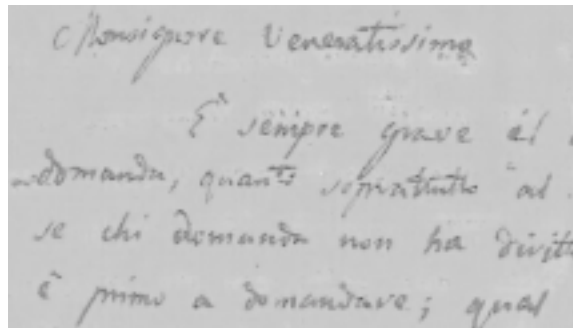 Monsignore Veneratissimo
È sempre grave il
domanda, quanto sopratutto al
se chi domanda non ha diritt
è primo a domandare; qual